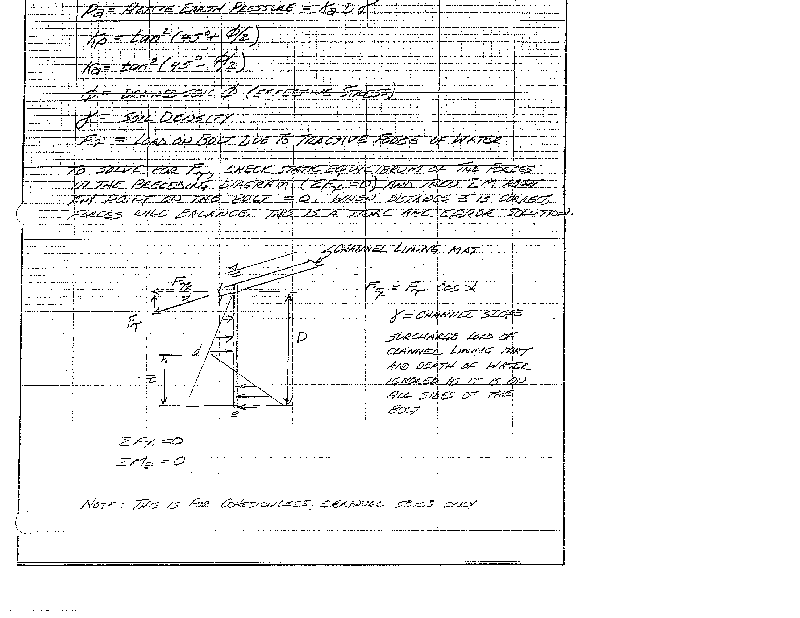 Pa = ACTIVE EARTH PRESSURE = Ka D γ
Kp = tan² (45° + φ/2)
Ka = tan² (45° - φ/2)
φ = DRAINED SOIL φ (EFFECTIVE STRESS)
γ = SOIL DENSITY
FT = LOAD ON BOLT DUE TO TRACTIVE FORCES OF WATER
TO SOLVE FOR FT, CHECK STATIC EQUILIBRIUM OF THE FORCES
IN THE PRECEDING DIAGRAM (ΣFx=0) AND THEN ΣM ABOUT
ANY POINT ON THE BOLT = 0. WHEN DISTANCE Z IS CORRECT,
FORCES WILL BALANCE. THIS IS A TRIAL AND ERROR SOLUTION.
CHANNEL LINING MAT
= FT COS α
= CHANNEL SIDES
D
SURCHARGE LOAD OF
CHANNEL LINING MAT
AND DEPTH OF WATER
IGNORED AS IT IS ON
ALL SIDES OF THE
BOLT
FT
d
Z
e
ΣFx = 0
ΣMe = 0
NOTE: THIS IS FOR COHESIONLESS, GRANULAR SOILS ONLY